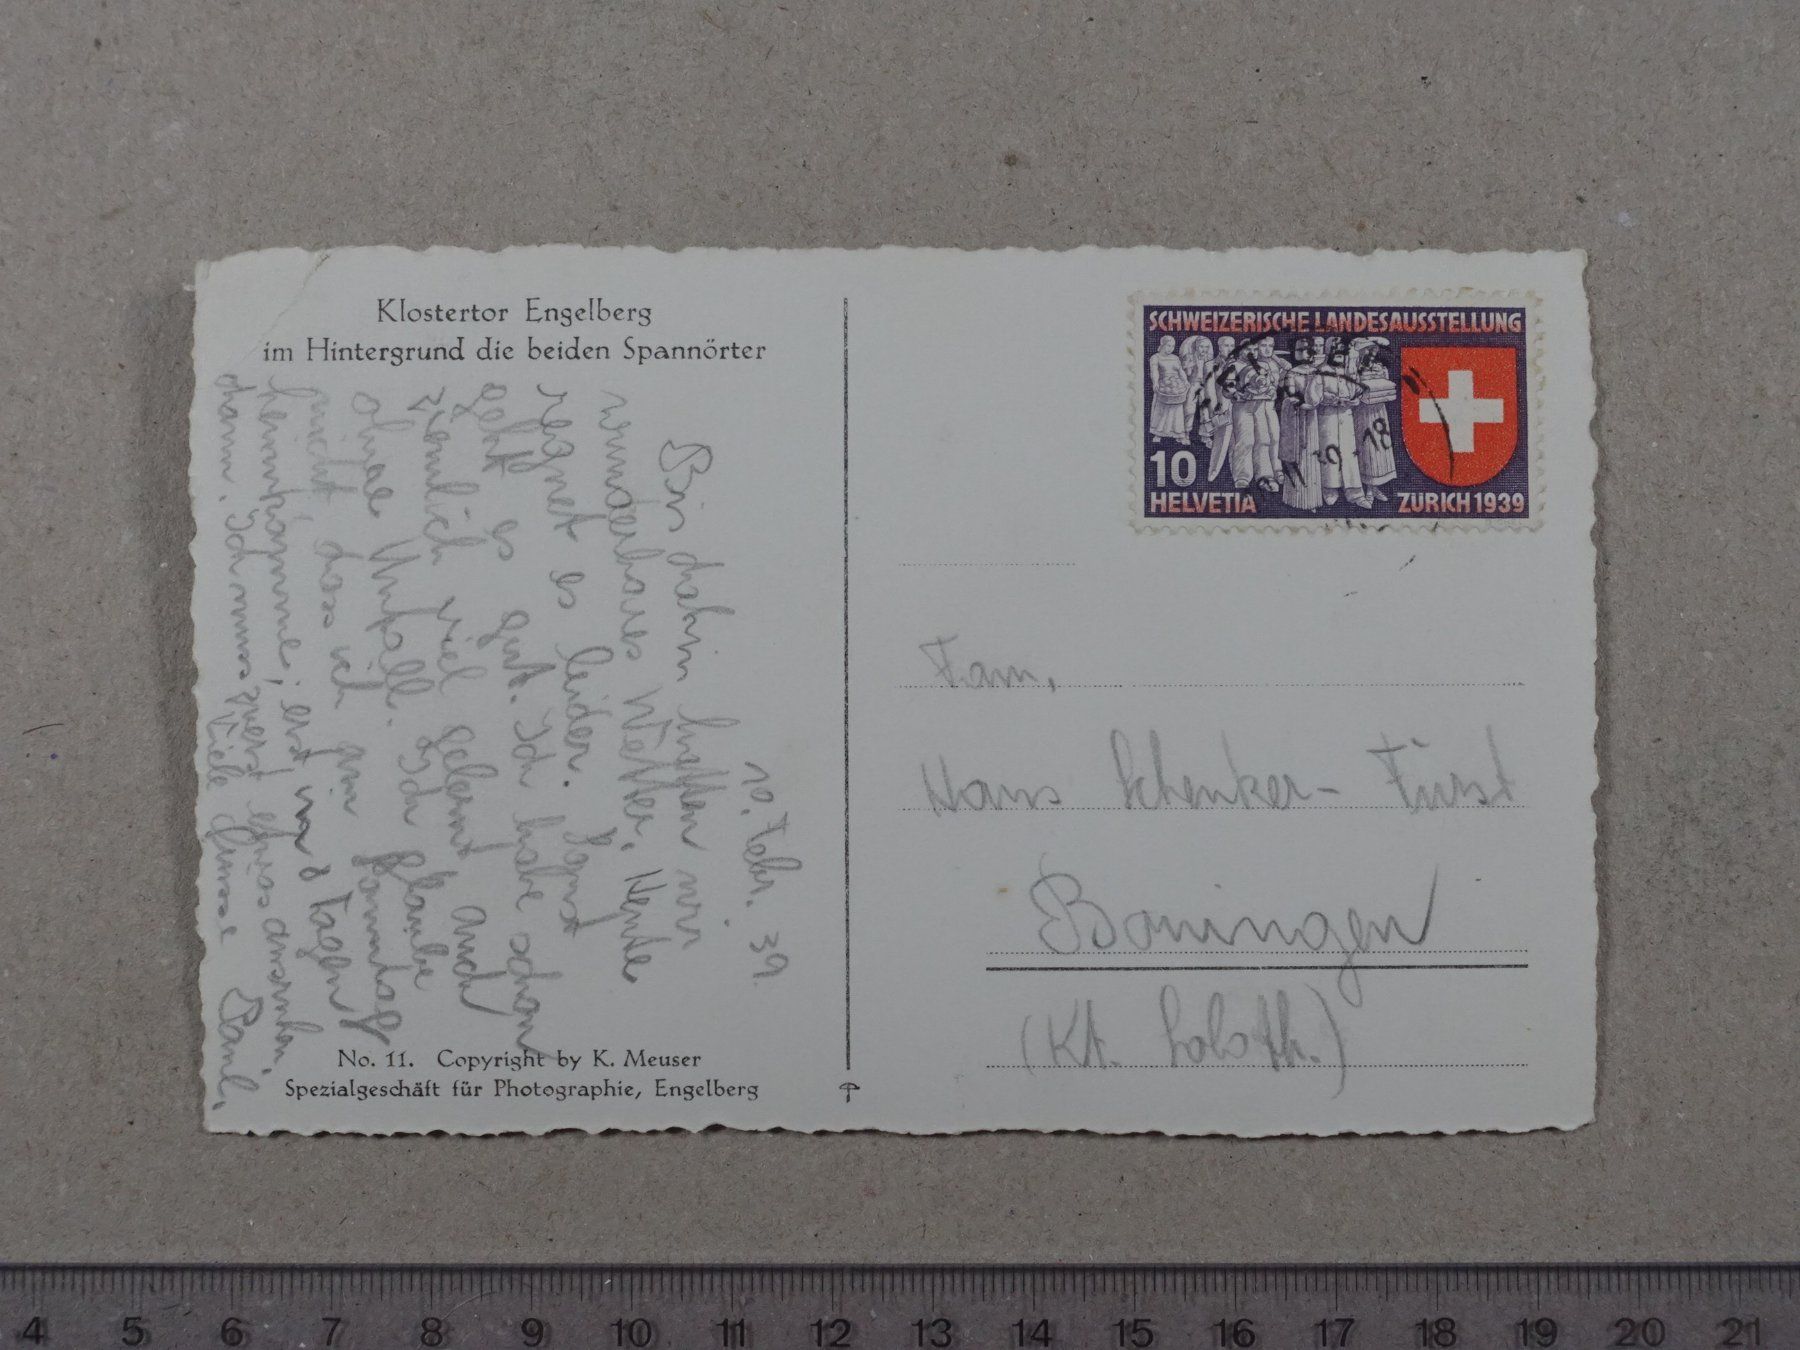 Klostertor Engelberg
im Hintergrund die beiden Spannörter
10. Febr. 39.
Bis dahin hatten wir
wunderbares Wetter. Heute
regnet es leider. Sonst
geht es gut. Ich habe schon
ziemlich viel gelernt auch
ohne Unfall. Ich glaube
nicht, dass ich am Sonntag
heimkomme, erst in 8 Tagen
dann. Ich muss zuerst
Viele Grüsse Paul.
No. 11. Copyright by K. Meuser
Spezialgeschäft für Photographie, Engelberg
SCHWEIZERISCHE LANDESAUSSTELLUNG
10
HELVETIA
ZÜRICH 1939
Fam.
Hans Schenker-Fürst
Boningen
(Kt. Soloth.)
4 5 6 7 8 9 10 11 12 13 14 15 16 17 18 19 20 21